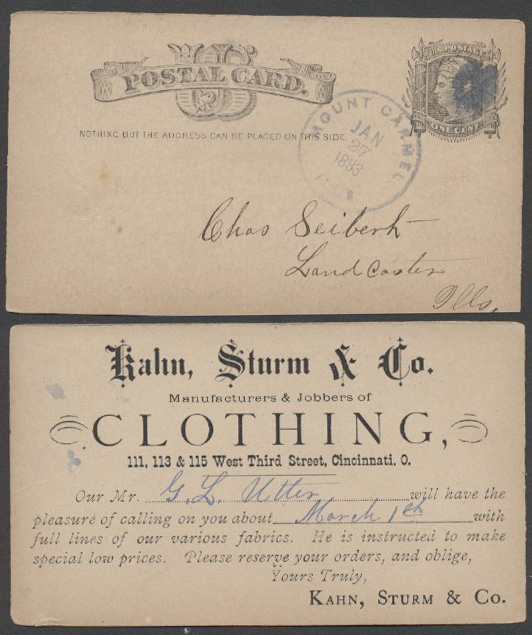 U.S. POSTAGE
POSTAL CARD.
US
ONE CENT
NOTHING BUT THE ADDRESS CAN BE PLACED ON THIS SIDE.
MOUNT CARMEL
JAN
27
1883
ILLS
Chas Seibert
Landcaster
Ills,
Kahn, Sturm & Co.
Manufacturers & Jobbers of
CLOTHING,
111, 113 & 115 West Third Street, Cincinnati, O.
Our Mr. G. L. Utter will have the
pleasure of calling on you about March 1st with
full lines of our various fabrics. He is instructed to make
special low prices. Please reserve your orders, and oblige,
Yours Truly,
KAHN, STURM & CO.